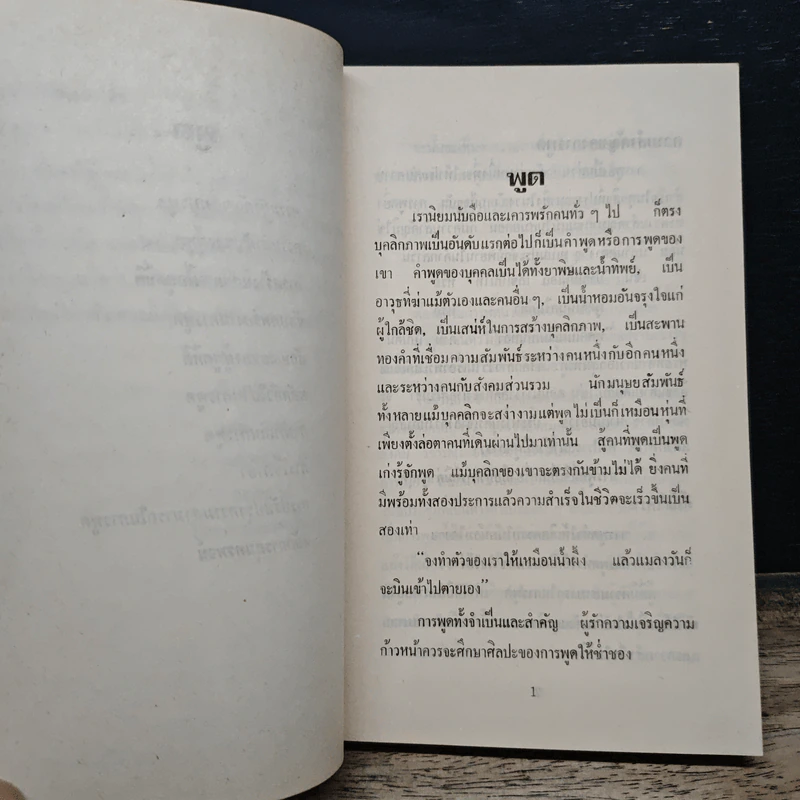 พูด
เรานิยมนับถือและเคารพรักคนทั่ว ๆ ไป ก็ตรง
บุคลิกภาพเป็นอันดับแรกต่อไปก็เป็นคำพูดหรือการพูดของ
เขา คำพูดของบุคคลเป็นได้ทั้งยาพิษและน้ำทิพย์, เป็น
อาวุธที่ฆ่าแม้ตัวเองและคนอื่น ๆ, เป็นน้ำหอมอันจรุงใจแก่
ผู้ใกล้ชิด, เป็นเสน่ห์ในการสร้างบุคลิกภาพ, เป็นสะพาน
ทองคำที่เชื่อมความสัมพันธ์ระหว่างคนหนึ่งกับอีกคนหนึ่ง
และระหว่างคนกับสังคมส่วนรวม นักมนุษยสัมพันธ์
ทั้งหลายแม้บุคคลิกจะสง่างามแต่พูดไม่เป็นก็เหมือนหุ่นที่
เพียงตั้งล่อตาคนที่เดินผ่านไปมาเท่านั้น สู้คนที่พูดเป็นพูด
เก่งรู้จักพูด แม้บุคลิกของเขาจะตรงกันข้ามไม่ได้ ยิ่งคนที่
มีพร้อมทั้งสองประการแล้วความสำเร็จในชีวิตจะเร็วขึ้นเป็น
สองเท่า
“จงทำตัวของเราให้เหมือนน้ำผึ้ง แล้วแมลงวันก็
จะบินเข้าไปตายเอง”
การพูดทั้งจำเป็นและสำคัญ ผู้รักความเจริญความ
ก้าวหน้าควรจะศึกษาศิลปะของการพูดให้ช่ำชอง
1